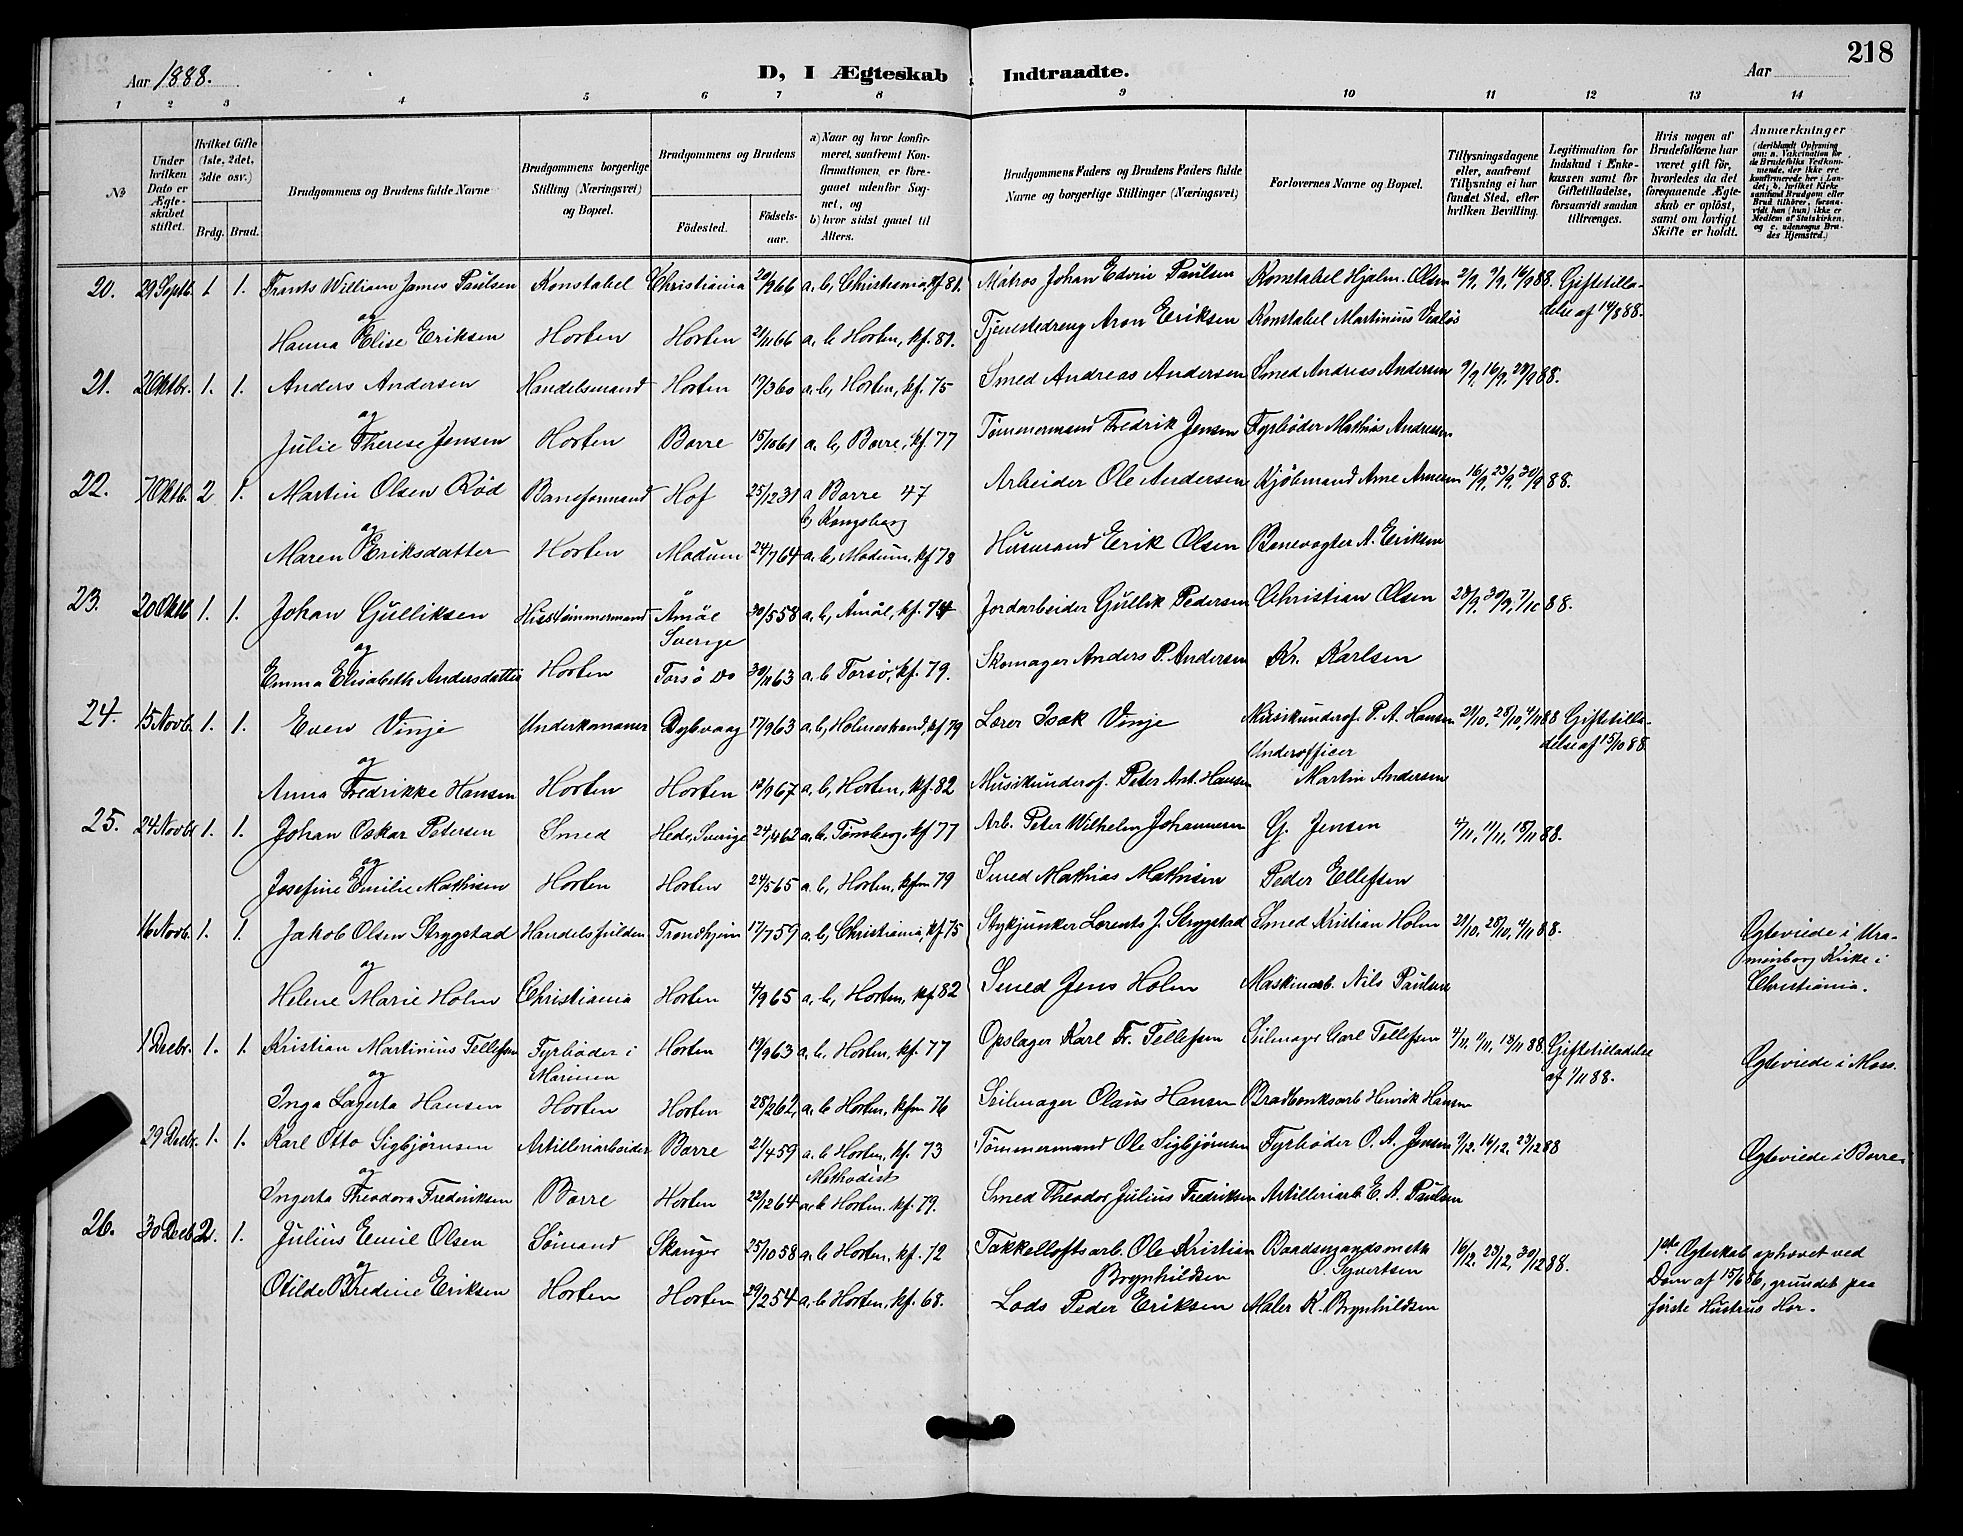 218
Aar 1888. D, I Ægteskab Indtraadte. Aar
1 2 3 4 5 6 7 8 9 10 11 12 13 14
No
Under hvilken Dato er Ægteskabet stiftet.
Hvilket Gifte (1ste, 2det, 3die osv.)
Brdg. Brud.
Brudgommens og Brudens fulde Navne
Brudgommens borgerlige Stilling (Næringsvei) og Bopæl.
Brudgommens og Brudens
Fødested. Fødselsaar.
a) Naar og hvor konfirmeret, saafremt Konfirmationen er foregaaet udenfor Sognet, og
b) hvor sidst gaaet til Alters.
Brudgommens Faders og Brudens Faders fulde Navne og borgerlige Stillinger (Næringsvei)
Forlovernes Navne og Bopæl.
Tillysningsdagene eller, saafremt Tillysning ei har fundet Sted, efter hvilken Bevilling.
Legitimation for Indskud i Enkekassen samt for Giftetilladelse, forsaavidt saadan tiltrænges.
Hvis nogen af Brudefolkene har været gift før, hvorledes da det foregaaende Ægteskab er opløst, samt om lovligt Skifte er holdt.
Anmærkninger (deriblandt Oplysning om: a. Vakcination for de Brudefolks Vedkommende, der ikke ere konfirmerede her i Landet; b. hvilket Kirkesamfund Brudgom eller Brud tilhører, forsaavidt han (hun) ikke er Medlem af Statskirken, og c. udensogns Brudes Hjemsted.)
20. 29 Septb. 1 1. Frants William James Paulsen Konstabel Christiania 20/9 66 a. b, Christiania, kf 81. Matros Johan Edvin Paulsen Konstabel Hjalm. Olsen 2/9, 9/9, 16/9 88. Giftetilladelse af 14/8 88.
og
Hanna Elise Eriksen Horten Horten 21/11 66 a. b Horten, kf. 81. Tjenestedreng Aron Eriksen Konstabel Martinius
21. 2 Oktbr. 1. 1. Anders Andersen Handelsmand Horten 17/3 60 a. b, Horten, kf. 75 Smed Andreas Andersen Smed Andreas Andersen 9/9, 16/9, 23/9 88.
og
Julie Therese Jensen Horten Borre 15/10 61 a. b, Borre, kf. 77 Tømmermand Fredrik Jensen Fyrbøder Mathias Andresen
22. 7 Oktb. 2 1. Martin Olsen Rød Baneformand Hof 25/12 31 a Borre 47 Arbeider Ole Andersen Kjøbmand Arne Arnesen 16/9, 23/9, 30/9 88.
b, Kongsberg
og
Maren Eriksdatter Horten Modum 24/7 64 a. b, Modum, kf 78 Husmand Erik Olsen Banevogter A. Eriksen
23. 20 Oktb 1. 1. Johan Gulliksen Hustømmermand Åmål 30/5 58 a. b, Åmål, kf. 74 Jordarbeider Gullik Pedersen Christian Olsen 23/9, 30/9, 7/10 88.
Sverige
og
Emma Elisabeth Andersdatter Horten Torsö Do 30/11 63 a. b Torsö, kf. 79. Skomager Anders P. Andersen Kr. Karlsen
24. 15 Novb. 1. 1. Even Vinje Underkanoner Dybvaag 17/9 63 a. b, Holmestrand, kf 79 Lærer Isak Vinje Musikunderof. P. A. Hansen 21/10, 28/10, 4/11 88 Giftetilladelse af 15/10 88.
Underofficer
og
Anna Fredrikke Hansen Horten Horten 12/9 67 a. b, Horten, kf. 82 Musikunderof. Peter Ant. Hansen Martin Andersen
25. 24 Novb 1. 1. Johan Oskar Petersen Smed Hede, Sverige 24/4 62 a. b. Tønsberg, kf 77 Arb. Peter Wilhelm Johannesen G. Jensen 4/11, 11/11, 18/11 88.
og
Josefine Emilie Mathisen Horten Horten 24/5 65 a. b, Horten, kfm 79 Smed Mathias Mathisen Peder Ellefsen
16 Novb. 1. 1. Jakob Olsen Strygstad Handelsfuldm Trondhjem 17/7 59 a. b, Christiania, kf. 75 Stykjunker Lorents J. Strygstad Smed Kristian Holm 21/10, 28/10, 4/11 88. Egteviede i Uranienborg Kirke i Christiania.
og
Helene Marie Holm Christiania Horten 4/9 65 a. b, Horten, kf 82 Smed Jens Holm Maskinarb. Nils Paulsen
1 Decbr. 1. 1. Kristian Martinius Tellefsen Fyrbøder i Horten 19/9 63 a. b. Horten, kf. 77 Opslager Karl Fr. Tellefsen Seilmager Carl Tellefsen 4/11, 11/11, 18/11 88. Giftetilladelse af 1/11 88. Egteviede i Moss.
Marinen
og
Inga Lagerta Hansen Horten Horten 28/2 62, a. b Horten, kfm 76 Seilmager Olaus Hansen Bradbænksarb Henrik Hansen
29 Decbr. 1. 1. Karl Otto Sigbjørnsen Artilleriarbeider Borre 21/4 59 a. b Horten, kf. 73 Tømmermand Ole Sigbjørnsen Fyrbøder O. A. Jensen 9/12, 16/12, 23/12 88 Egteviede i Borre.
Methodist
og
Ingerta Theodora Fredriksen Borre Horten 22/12 64 a. b Horten. kf. 79. Smed Theodor Julius Fredriksen Artilleriarb E. A. Paulsen
26. 30 Decb 2. 1. Julius Emil Olsen Sømand Skauger 25/10 58 a. b Horten, kf. 72 Takkelloftsarb. Ole Kristian Brynhildsen Baadsmandsmath O. Syvertsen 16/12, 23/12, 30/12 88. 1ste Egteskab ophævet ved Dom af 15/6 86, grundet paa første Hustrus Hor.
og
Otilde Bredine Eriksen Horten Horten 29/2 54 a. b Horten, kf. 68. Lods Peder Eriksen Maler K. Brynhildsen